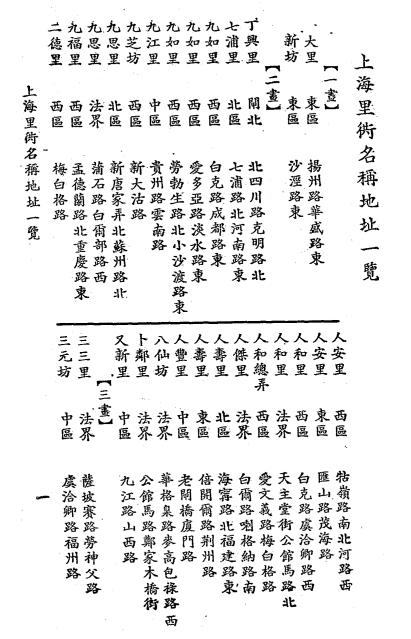 上海里衖名稱地址一覽
【一畫】
大里 東區 揚州路華盛路東
新坊 東區 沙涇路東
【二畫】
丁興里 閘北 北四川路克明路北
七浦里 北區 七浦路北河南路東
九如里 西區 白克路成都路東
九如里 西區 愛多亞路淡水路東
九如里 西區 勞勃生路北小沙渡路東
九江里 中區 貴州路雲南路
九芝坊 西區 新大沽路
九思里 北區 新唐家弄北蘇州路北
九思里 法界 蒲石路白爾部路西
九福里 西區 孟德蘭路北重慶路東
二德里 西區 梅白格路
人安里 西區 牯嶺路南北河路西
人安里 東區 匯山路茂海路
人和里 西區 白克路虞洽卿路西
人和里 法界 天主堂街公館馬路北
人和總弄 西區 愛文義路梅白格路
人傑里 法界 白爾路喇格納路南
人壽里 北區 海甯路北福建路東
人壽里 東區 倍開爾路荊州路
人豐里 中區 老閘橋廈門路
八仙坊 法界 華格臬路麥高包祿路西
卜鄰里 法界 公館馬路鄭家木橋街
又新里 中區 九江路山西路
【三畫】
三三里 法界 薩坡賽路勞神父路
三元坊 中區 虞洽卿路福州路
上海里衖名稱地址一覽
一